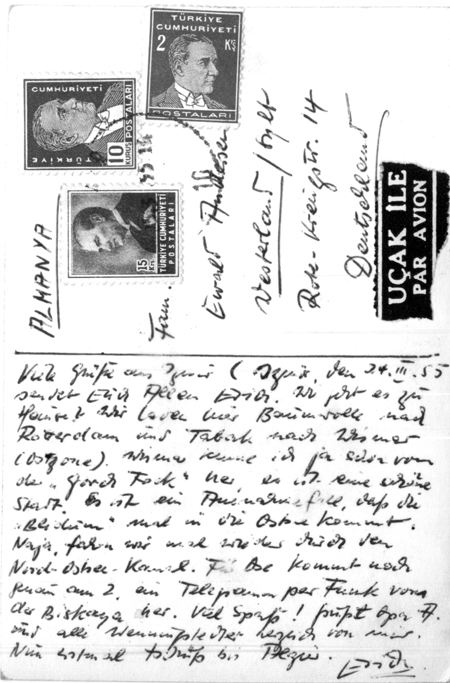 TÜRKİYE
CUMHURİYETİ
2 KŞ
POSTALARI
CUMHURİYETİ
TÜRKİYE
10
KURUŞ
POSTALARI
15
TÜRKİYE CUMHURİYETİ
POSTALARI
ALMANYA
Fam.
Ewald Andresen
Westerland/Sylt
Rote-Kreuzstr. 14
Deutschland
UÇAK İLE
PAR AVION
Viele Grüße aus Izmir (Izmir, den 24.III.55
sendet Euch Allen Erich. Wie geht es zu
Hause? Wir laden hier Baumwolle nach
Rotterdam und Tabak nach Wismar
(Ostzone). Wismar kenne ich ja schon von
der "Gorch Fock" her, es ist eine schöne
Stadt. Es ist ein daß die
mal in die Ostsee kommt.
Naja, fahren wir mal wieder durch den
Nord-Ostsee-Kanal. Für Ose kommt noch
genau am 2. ein Telegramm per Funk von
der Biskaya her. Viel Spaß! grüßt Opa A.
und alle herzlich von mir.
Nun erstmal tschüß bis
Erich